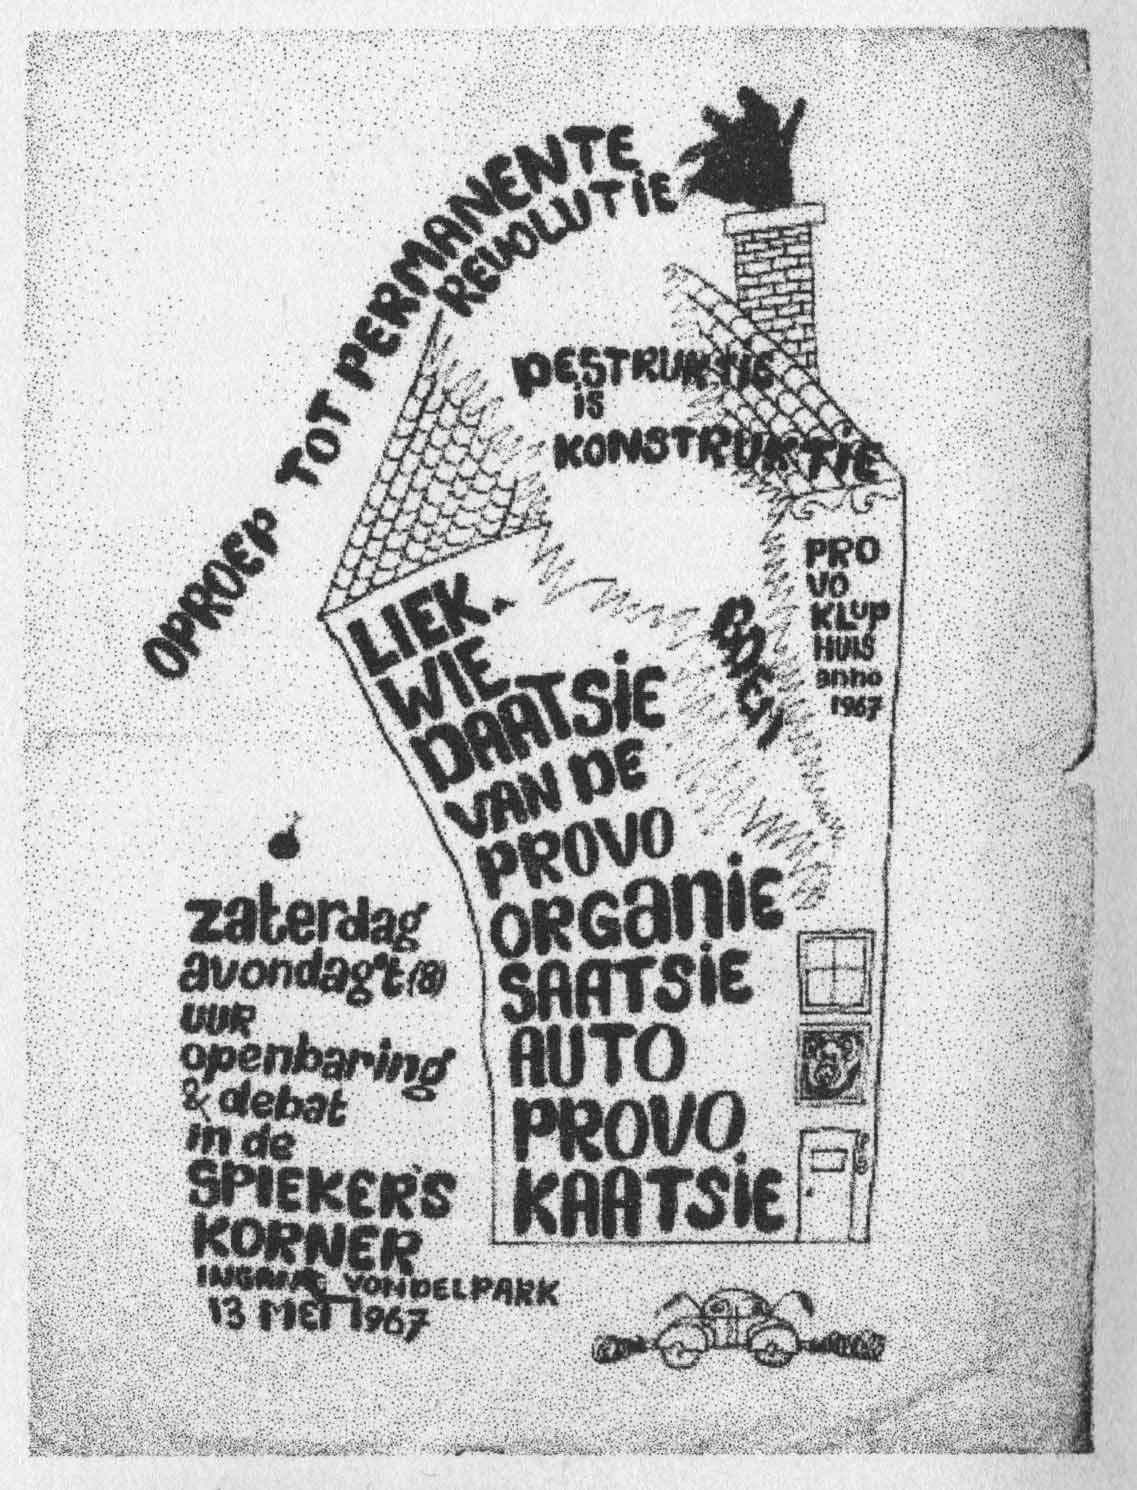 OPROEP TOT PERMANENTE
REVOLUTIE
DESTRUKTIE
is
KONSTRUKTIE
PRO
VO
KLUP
HUIS
anno
1967
BOEM
LIEK.
WIE
DAATSiE
VAN DE
PROVO
ORGaniE
SAATSiE
AUTO
PROVO
KAATSiE
zaterdag
avondag't (8)
UUR
openbaring
& debat
in de
SPIEKER'S
KORNER
INGANG VONDELPARK
13 MEI 1967